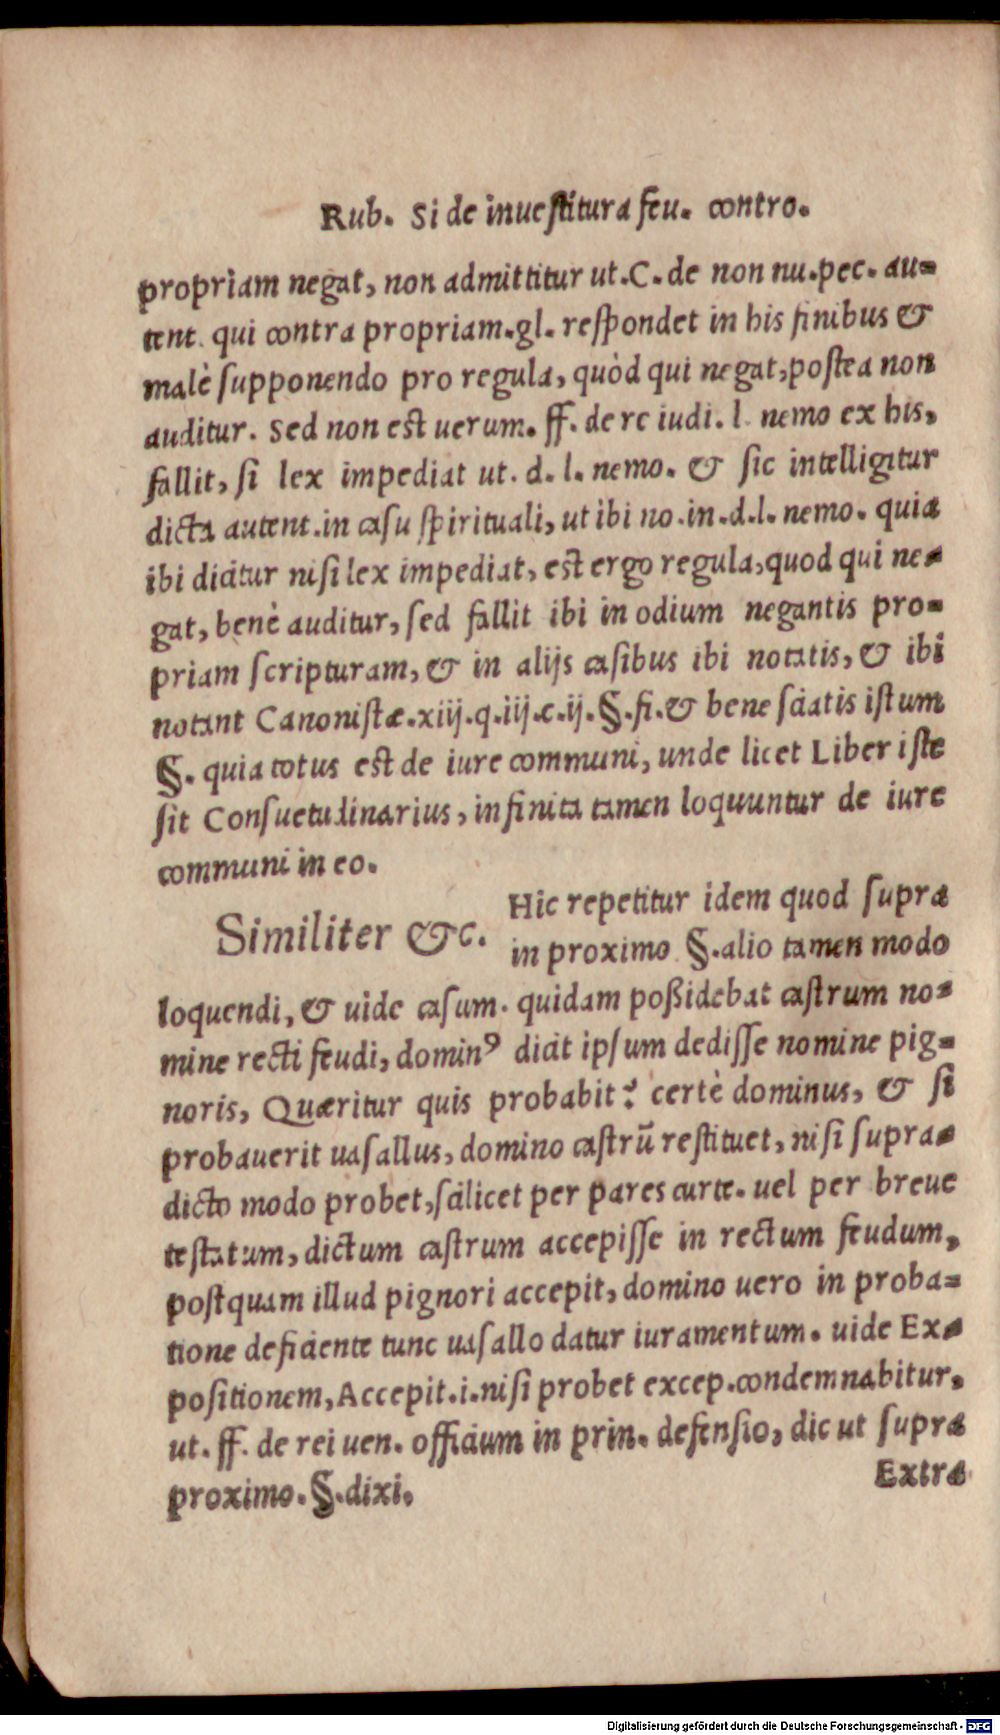 Rub. Si de inuestitura feu. contro.
propriam negat, non admittitur ut.C.de non nu.pec.au-
tent. qui contra propriam.gl. respondet in his finibus &
malè supponendo pro regula, quòd qui negat, postea non
auditur. Sed non est uerum. ff. de re iudi. l. nemo ex his,
fallit, si lex impediat ut. d. l. nemo. & sic intelligitur
dicta autent.in casu spirituali, ut ibi no.in.d.l. nemo. quia
ibi dicitur nisi lex impediat, est ergo regula, quod qui ne-
gat, benè auditur, sed fallit ibi in odium negantis pro-
priam scripturam, & in alijs casibus ibi notatis, & ibi
notant Canonistæ.xiij.q.iij.c.ij.§.fi.& bene sciatis istum
§. quia totus est de iure communi, unde licet Liber iste
sit Consuetudinarius, infinita tamen loquuntur de iure
communi in eo.
Similiter &c. Hic repetitur idem quod supra
in proximo §.alio tamen modo
loquendi, & uide casum. quidam poßidebat castrum no-
mine recti feudi, dominꝰ dicit ipsum dedisse nomine pig-
noris, Quæritur quis probabit? certè dominus, & si
probauerit uasallus, domino castrũ restituet, nisi supra-
dicto modo probet, scilicet per pares curte. uel per breue
testatum, dictum castrum accepisse in rectum feudum,
postquam illud pignori accepit, domino uero in proba-
tione deficiente tunc uasallo datur iuramentum. uide Ex-
positionem, Accepit.i.nisi probet excep.condemnabitur.
ut. ff. de rei uen. officium in prin. defensio, dic ut supra
proximo.§.dixi.
Extra
Digitalisierung gefördert durch die Deutsche Forschungsgemeinschaft - DFG